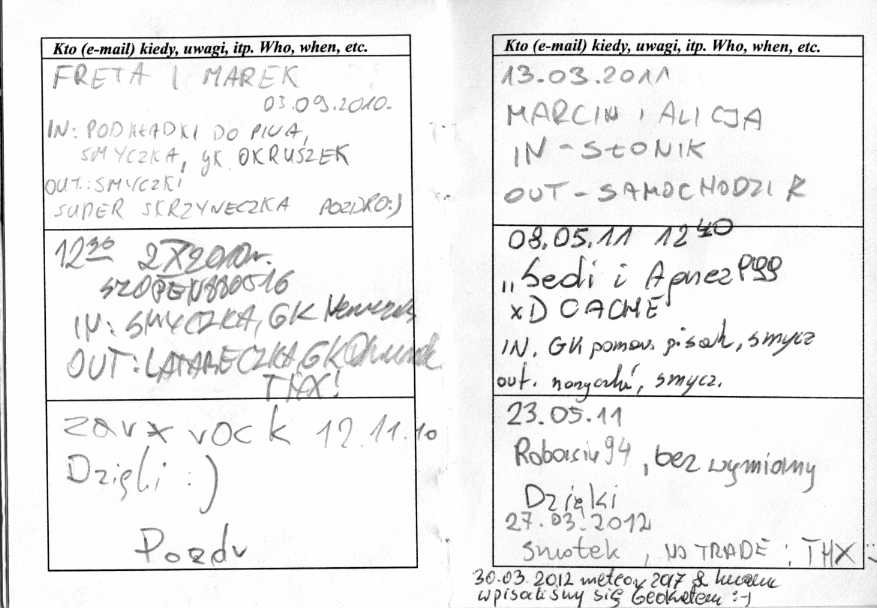 Kto (e-mail) kiedy, uwagi, itp. Who, when, etc.
FRETA I MAREK
03.09.2010.
IN: PODKŁADKI DO PIWA,
SMYCZKA, GK OKRUSZEK
OUT: SMYCZKI
SUPER SKRZYNECZKA POZDRO:)
12 30 2 X 2010r.
SZOPEN880516
IN: SMYCZKA, GK
OUT: LATARECZKA, GK
THX!
zavxvock 12.11.10
Dzięki :)
Pozdr
Kto (e-mail) kiedy, uwagi, itp. Who, when, etc.
13.03.2011
MARCIN I ALICJA
IN - SŁONIK
OUT - SAMOCHODZIK
08.05.11 12 40
"Sedi i
xD CACHE
IN. GK pomar. pisak, smycz
out. nożyczki, smycz.
23.05.11
94, bez wymiany
Dzięki
27.03.2012
smotek, NO TRADE; THX :)
30.03.2012 meteor2017 &
wpisaliśmy się Geokretem :-)